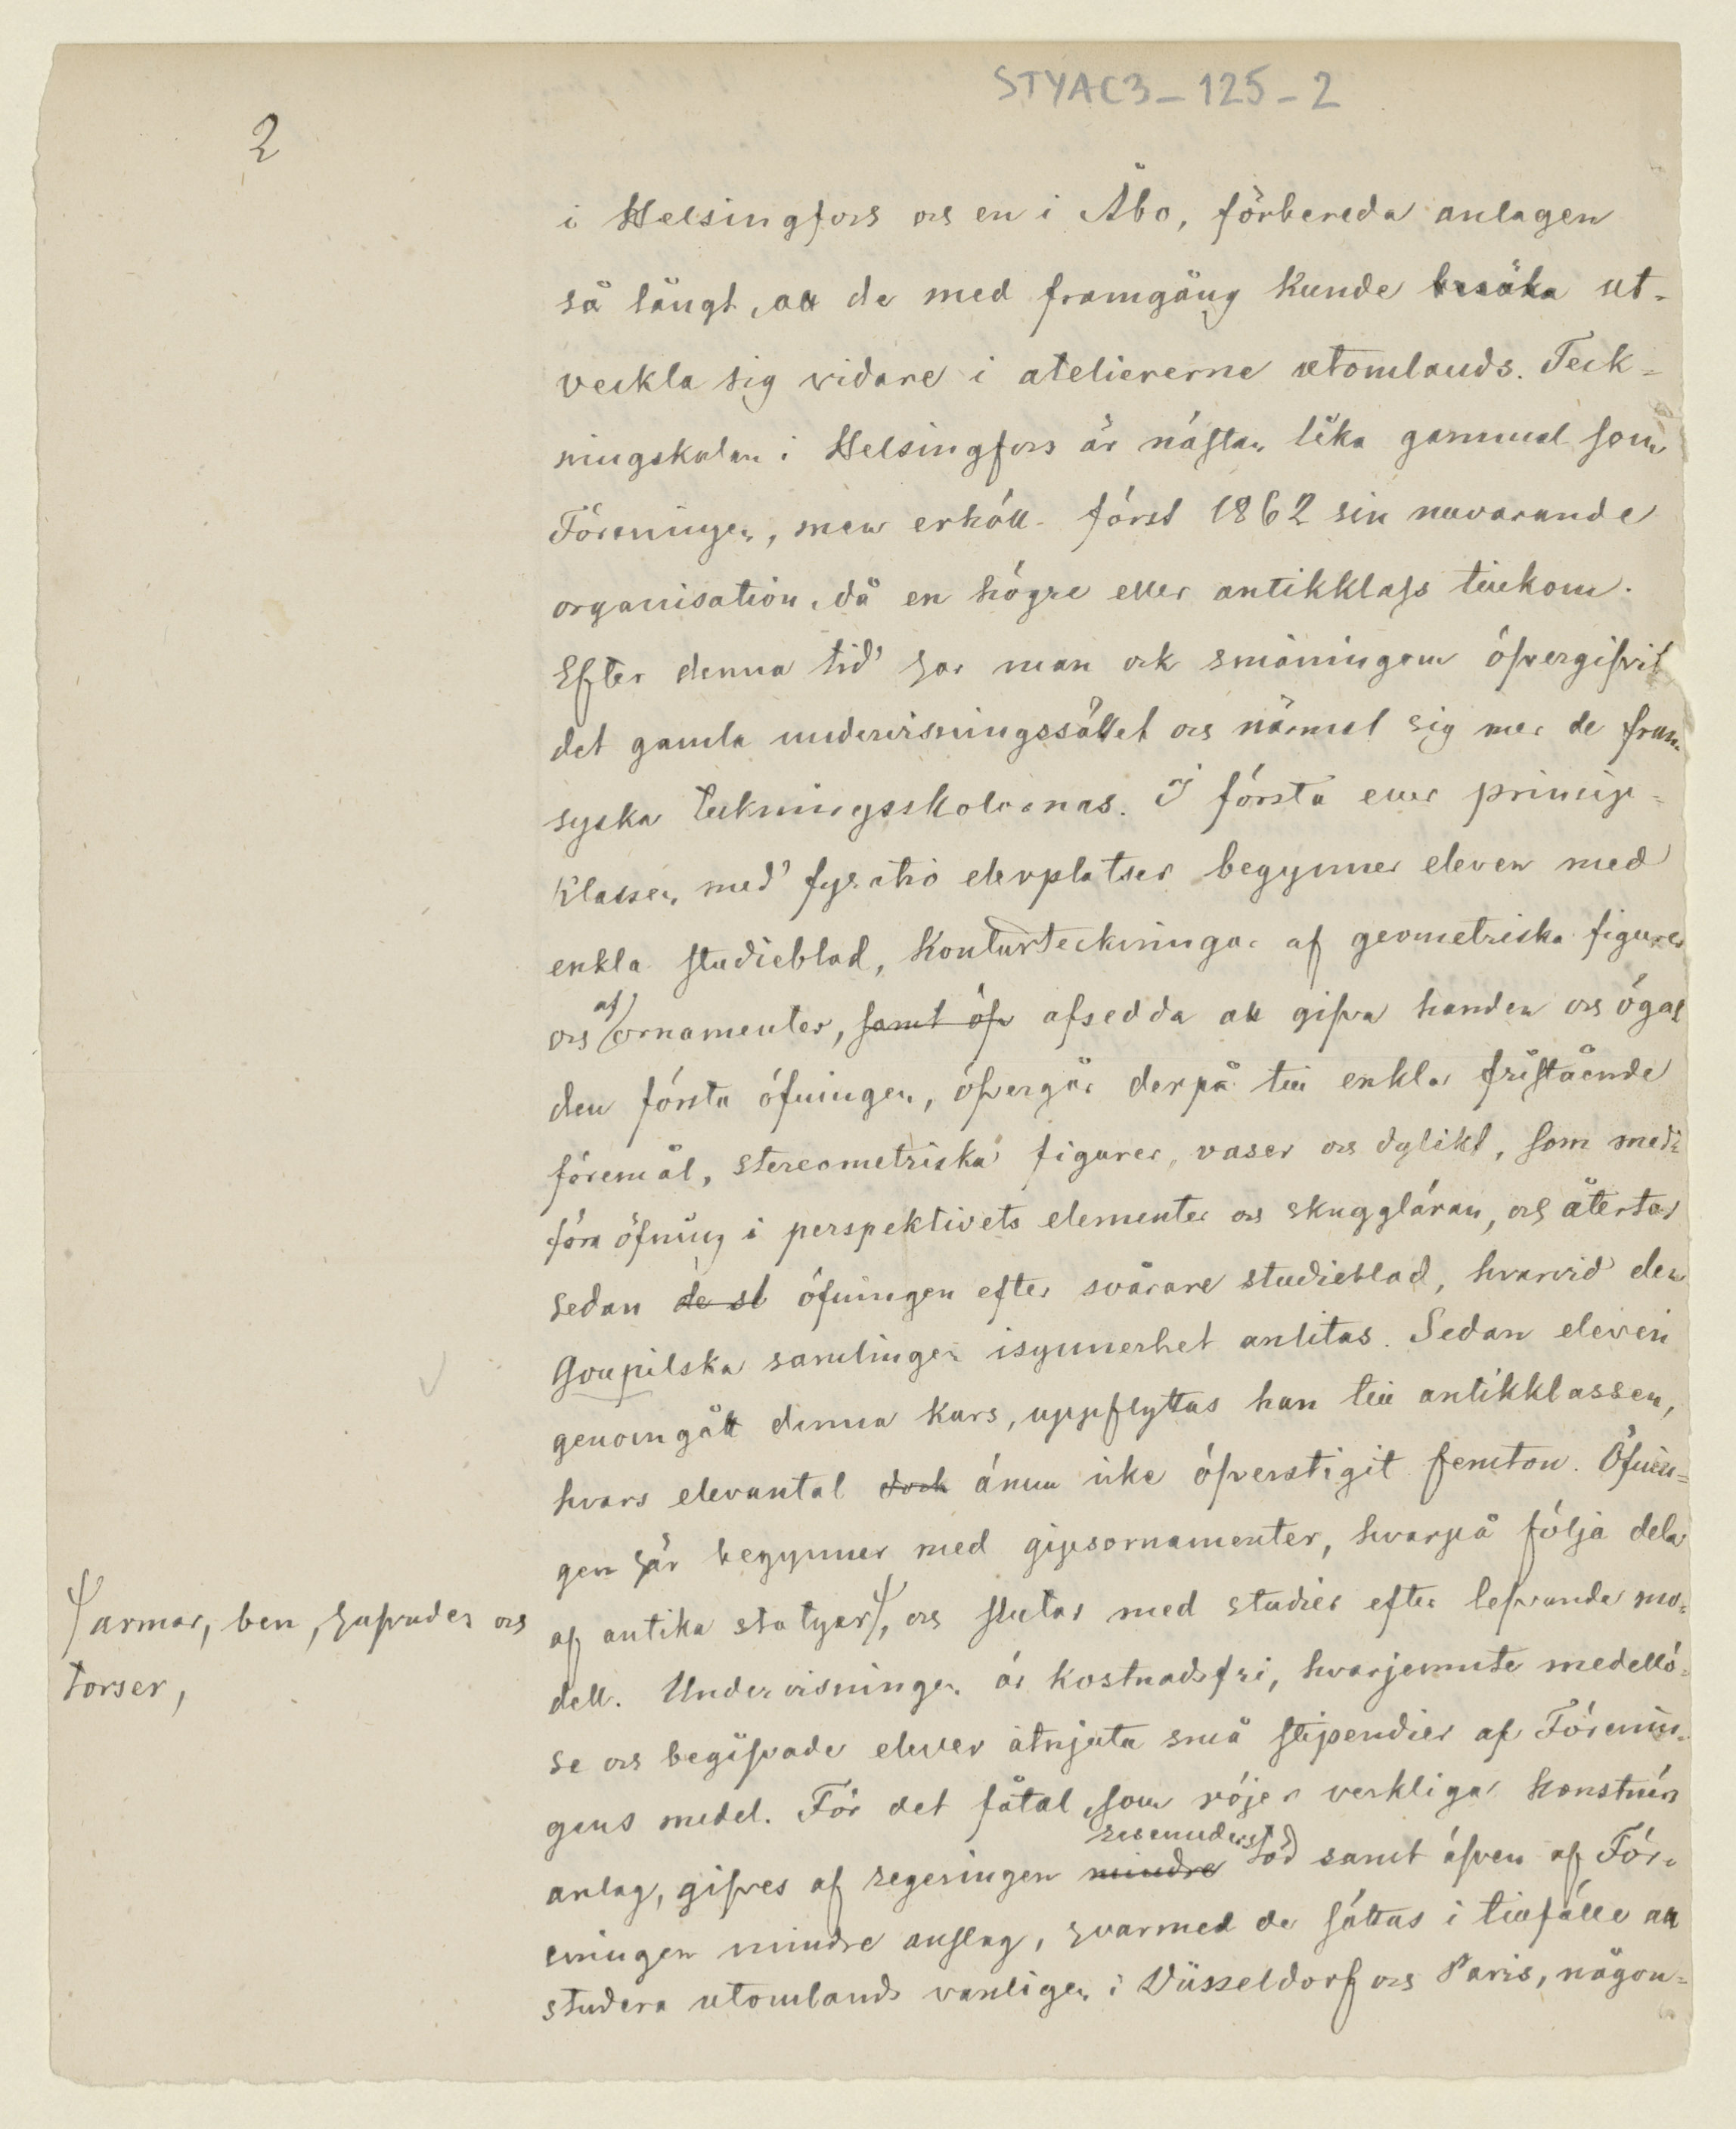 STYAC3_125_2
2
i Helsingfors och en i Åbo, förbereda anlagen
så långt, att de med framgång kunde besöka ut-
veckla sig vidare i ateliererne utomlands. Teck-
ningskolan i Helsingfors är nästan lika gammal som
Föreningen, men erhöll först 1862 sin nuvarande
organisation, då en högre eller antikklass tillkom.
Efter denna tid har man ock småningom öfvergifvit
det gamla undervisningssättet och närmat sig mer de fran-
syska teckningsskolornas. I första eller princip-
klassen, med fyratio elevplatser begynner eleven med
enkla studieblad, konturteckningar af geometriska figurer
och af ornamenter, samt öfv afsedda att gifva handen och ögat
den första öfningen, öfvergår derpå till enkla fristående
föremål, stereometriska figurer, vaser och dylikt, som med-
föra öfning i perspektivets elementer och skuggläran, och återtar
sedan de st öfningen efter svårare studieblad, hvarvid den
Goupilska samlingen isynnerhet anlitas. Sedan eleven
genomgått denna kurs, uppflyttas han till antikklassen,
hvars elevantal dock ännu icke öfverstigit femton. Öfnin-
gen här begynner med gipsornamenter, hvarpå följa delar
af antika statyer, och slutar med studier efter lefvande mo-
armar, ben, hufvuden och
torser,
dell. Undervisningen är kostnadsfri, hvarjemnte medellö-
se och begåfvade elever åtnjuta små stipendier af Förenin-
gens medel. För det fåtal, som röjer verkliga konstnärs
anlag, gifves af regeringen mindre reseunderstöd samt äfven af För-
eningen mindre anslag, hvarmed de sättas i tillfälle att
studera utomlands vanligen i Düsseldorf och Paris, någon-